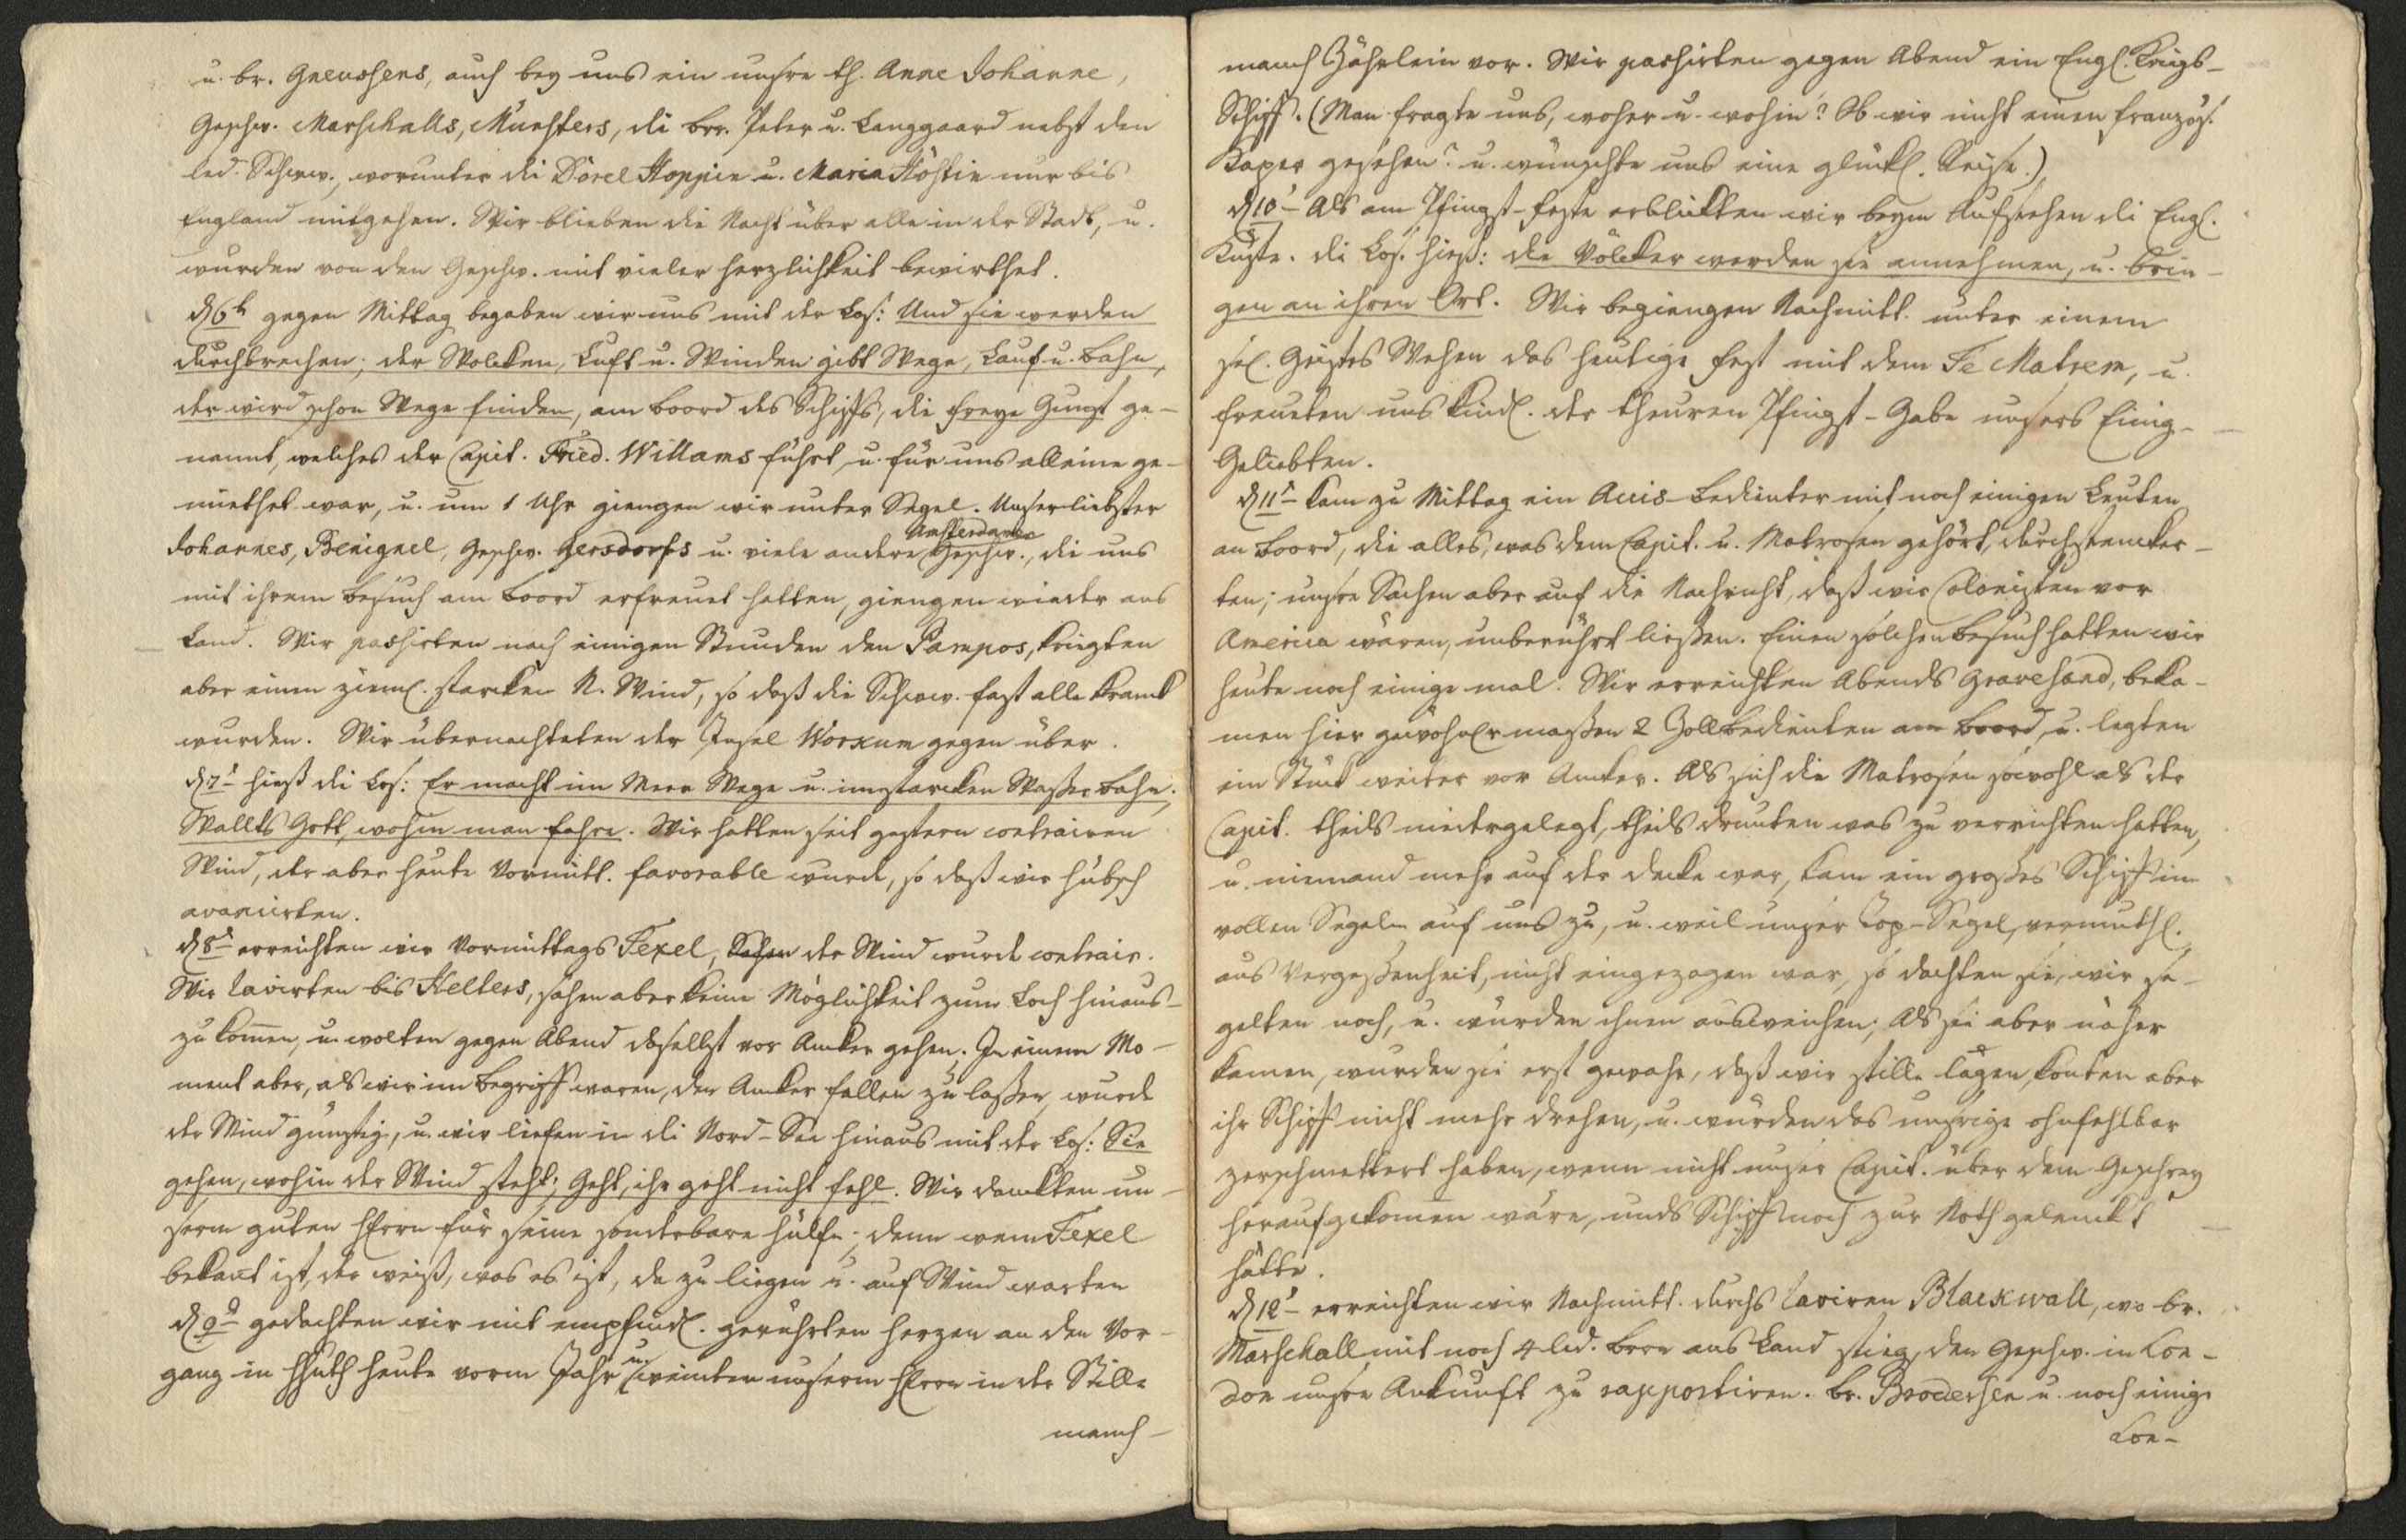 u. br. Gneussens, auch bey uns ein unsre th. Anne Johanne,
Geschw. Marschalls, Münsters, die brr. Peter u. Langgaard nebst den
led. Schww., worunter die Dörel Hoppin u. Maria Höstin nur bis
England mitgehen. Wir blieben die Nacht über alle in der Stadt, u.
wurden von den Geschw. mit vieler herzlichkeit bewirthet.
d 6t gegen Mittag begaben wir uns mit der Los: Und sie werden
durchbrechen; der Wolcken, Luft u. Winden gibt Wege, Lauf u. bahn,
der wird schon Wege finden, am boord des Schiffs, die freye Gunst ge-
nannt, welches der Capit. Fried. Willams führt, u. für uns alleine ge-
miethet war, u. um 1 Uhr giengen wir unter Segel. Unser liebster
Johannes, Benignel, Geschw. Gersdorfs u. viele andere Amsterdamer Geschw., die uns
mit ihrem besuch am boord erfreuet hatten, giengen wieder ans
Land. Wir passirten nach einigen Stunden den Pampos, kriegten
aber einen zieml. starcken N. Wind, so daß die Schww. fast alle kranck
wurden. Wir übernachteten der Insel Worxum gegen über.
d 7t hieß die Los: Er macht im Meer Wege u. im starcken Waßer bahn;
Wallts Gott, wohin man fahre. Wir hatten seit gestern contrairen
Wind, der aber heute Vormitt. favorable wurde, so daß wir hübsch
avancirten.
d 8t erreichten wir Vormittags Texel, der Wind wurde contrair.
Wir lavirten bis Helters, sahen aber keine Möglichkeit zum Loch hinaus-
zu kommen, u. wolten gegen Abend daselbst vor Ancker gehen. In einem Mo-
ment aber, als wir im begriff waren, den Ancker fallen zu laßen, wurde
der Wind günstig, u. wir liefen in die Nord-See hinaus mit der Los: Sie
gehen, wohin der Wind steht; Geht, ihr geht nicht fehl. Wir danckten un-
serm guten HErrn für seine sonderbare hülfe; denn wem Texel
bekant ist, der weiß, was es ist, da zu liegen u. auf Wind warten
d 9t gedachten wir mit empfindl. gerührten herzen an den Vor-
gang in HHuth heute vorm Jahr u. weinten unserm HErrn in der Stille
manch-
manch Zährlein vor. Wir passirten gegen Abend ein Engl. Kriegs-
Schiff. (Man fragte uns, woher u. wohin? Ob wir nicht einen französ.
Kaper gesehen? u. wünschte uns eine glückl. Reise.)
d 10t Als am Pfingst-feste erblickten wir beym Aufstehen die Engl.
Küste. die Los. hieß: die Völcker werden sie annehmen, u. brin-
gen an ihren Ort. Wir begiengen Nachmitt. unter einem
sel. Geistes Wehen das heutige fest mit dem Te Matrem, u.
freueten uns kindl. der theuren Pfingst-Gabe unsers Einig-
Geliebten.
d 11t kam zu Mittag ein Accis-bedienter mit noch einigen Leuten
an boord, die alles, was dem Capit. u. Matrosen gehört, durchstencker-
ten; unsre Sachen aber auf die Nachricht, daß wir Colonisten vor
America wären, unberührt ließen. Einen solchen besuch hatten wir
heute noch einige mal. Wir erreichten Abends Gravesand, beka-
men hier gewöhnlr maßen 2 Zollbedienten am boord, u. legten
ein Stück weiter vor Ancker. Als sich die Matrosen sowohl als der
Capit. theils niedergelegt, theils drunten was zu verrichten hatten,
u. niemand mehr auf der decke war, kam ein großes Schiff in
vollen Segeln auf uns zu, u. weil unser Top-Segel, vermuthl.
aus Vergeßenheit, nicht eingezogen war, so dachten sie, wir se-
gelten noch, u. würden ihnen ausweichen; Als sie aber näher
kamen, wurden sie erst gewahr, daß wir stille lagen, konten aber
ihr Schiff nicht mehr drehen, u. würden das unsrige ohnfehlbar
zerschmettert haben, wenn nicht unser Capit. über dem Geschrey
heraufgekommen wäre, unds Schiff noch zur Noth gelenckt
hätte.
d 12t erreichten wir Nachmitt. durchs laviren Blackwall, wo br.
Marschall mit noch 4 led. brrn ans Land stieg, den Geschw. in Lon-
don unsre Ankunft zu rapportiren. br. Brodersen u. noch einige
Lon-